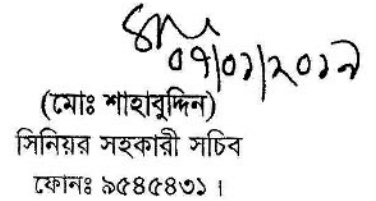 ০৭/০১/২০১৭
(মোঃ শাহাবুদ্দিন)
সিনিয়র সহকারী সচিব
ফোনঃ ৯৫৪৫৪৩১ ।